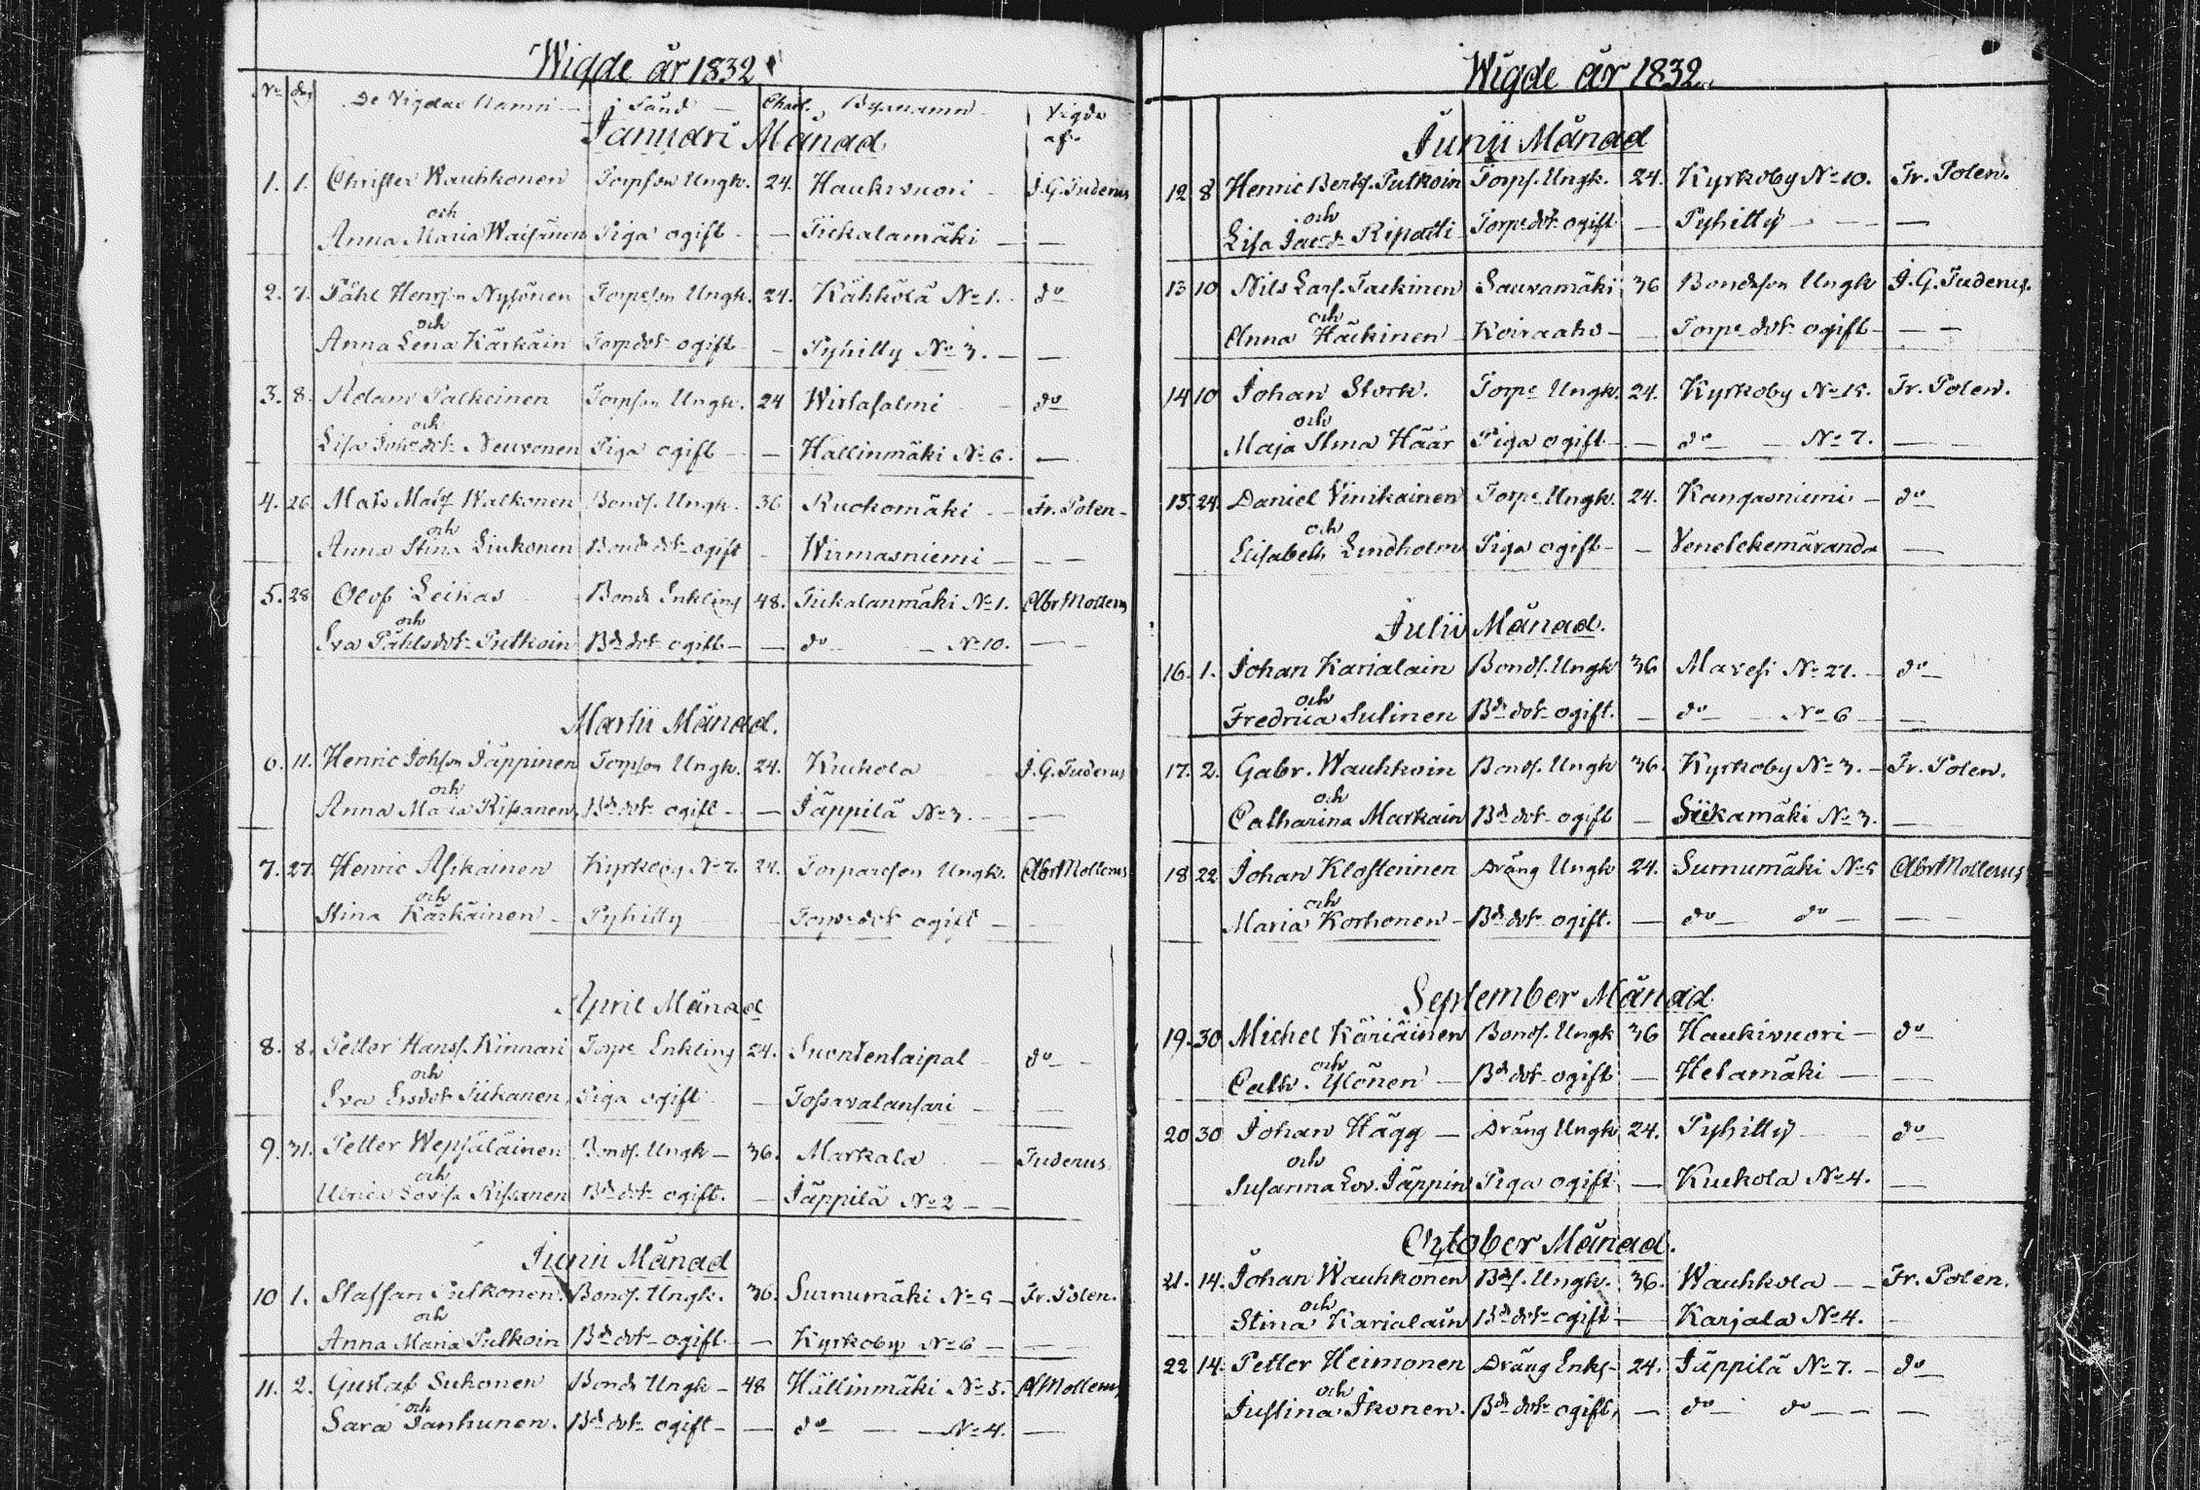 Wigde år 1832
No dag De Vigdas Namn Stånd Chart. Bynamn Vigde af
Januari Månad
1. 1. Christer Wauhkonen Torpson Ungk. 24. Haukivuori J.G. Tuderus
och
Anna Maria Waisänen Piga ogift — Tiekalamäki —
2. 7. Påhl Henrson Nylönen Torpson Ungk. 24. Kähkölä No 1. do
och
Anna Lena Kärkäin Torpdotr ogift — Pyhitty No 3. —
3. 8. Adam Palkeinen Torpson Ungk. 24 Wirtasalmi do
och
Lisa Johsdotr Neuvonen Piga ogift — Hällinmäki No 6. —
4. 26. Mats Matsf Walkonen Bonds. Ungk. 36 Ruokomäki Fr. Polen
och
Anna Stina Liukonen Bonde dotr ogift — Wirmasniemi —
5. 28 Olof Leikas Bonde Enkling 48. Tiekalanmäki No 1. Abr Mollerus
och
Eva Påhlsdotr Pulkoin Bde dotr ogift — do — No 10. —
Martii Månad.
6. 11. Henric Johson Jäppinen Torpson Ungk. 24. Kuckola J.G. Tuderus
och
Anna Maria Rissanen Bde dotr ogift — Jäppilä No 3. —
7. 27. Henric Asikainen Kyrkoby No 7. 24. Torpareson Ungk. Abr Mollerus
och
Stina Kärkäinen Pyhitty — Torpe dotr ogift —
April Månad
8. 8. Petter Hansf. Kinnari Torpe Enkling 24. Suontenlaipal do
och
Eva Ersdotr Tiikanen Piga ogift — Tossavalansari —
9. 31. Petter Wepsäläinen Bonds. Ungk — 36. Markala Tuderus
och
Ulrica Lovisa Rissanen Bde dotr ogift. — Jäppilä No 2 —
Junii Månad
10 1. Staffan Pulkonen. Bonds. Ungk. 36. Surnumäki No 5 — Fr. Polen.
och
Anna Maria Pulkoin Bde dotr ogift — Kyrkoby No 6 —
11. 2. Gustaf Suhonen Bonde Ungk — 48 Hällinmäki No 5. A Mollerus
och
Sara Janhunen. Bde dotr ogift — do — No 4. —
Wigde år 1832
Junii Månad
12 8 Henric Bertsf. Pulkoin Torps. Ungk. 24. Kyrkoby No 10. Fr. Polen.
och
Lisa Jacsdr Ripatti Torpe dotr ogift — Pyhitty —
13 10 Nils Larsf. Tackinen Sauvamäki 36 Bondeson Ungk J.G. Tuderus.
och
Anna Häckinen Koiraaho — Torpe dotr ogift —
14 10 Johan Stork. Torpe Ungk. 24. Kyrkoby No 15. Fr. Polen.
och
Maja Stina Häär Piga ogift — do — No 7. —
15. 24. Daniel Vinikainen Torpe Ungk. 24. Kangasniemi — do
och
Elisabeth Lindholm Piga ogift — Venetekemäranda —
Julii Månad.
16. 1. Johan Karialain Bonds. Ungk 36 Mavesi No 27. — do
och
Fredrica Sulinen Bde dotr ogift. — do — No 6 —
17. 2. Gabr. Wauhkoin Bonds. Ungk 36. Kyrkoby No 3. — Fr. Polen.
och
Catharina Markain Bde dotr ogift — Siikamäki No 3. —
18 22 Johan Klosteinen Dräng Ungk 24. Surnumäki No 5 Abr Mollerus
och
Maria Korhonen — Bde dotr ogift. — do — do —
September Månad
19. 30 Michel Käriäinen Bonds. Ungk 36 Haukivuori — do
och
Cath. Ylönen — Bde dotr ogift — Hetamäki —
20 30 Johan Hägg — Dräng Ungk 24. Pyhitty — do
och
Susanna Lov. Jäppin Piga ogift — Kuckola No 4. —
October Månad.
21. 14. Johan Wauhkonen Bds. Ungk. 36. Wauhkola — Fr. Polen.
och
Stina Karialain Bde dotr ogift — Karjala No 4.
22 14. Petter Heimonen Dräng Enkl — 24. Jäppilä No 7. — do
och
Justina Ikonen. Bde dotr ogift, — do — do —